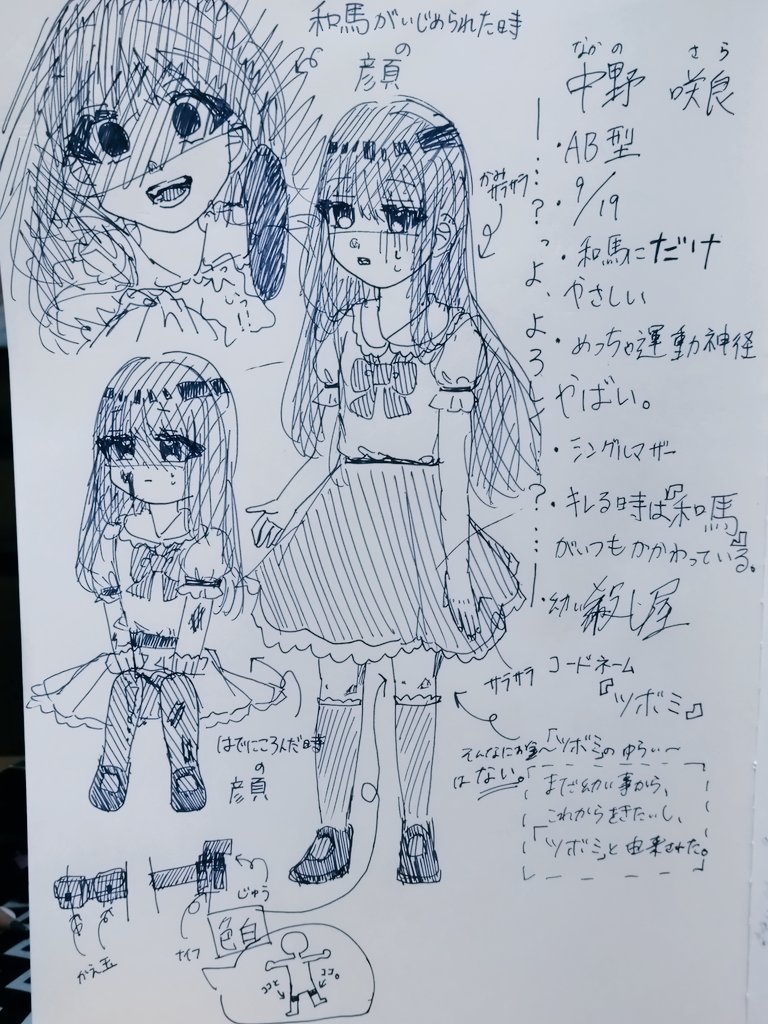 和馬がいじめられた時
の
顔
なかの さら
中野 咲良
・AB型
・9/19
・和馬にだけ
やさしい
・めっちゃ運動神経
やばい。
・シングルマザー
・キレる時は『和馬』
がいつもかかわっている。
・幼い殺し屋
コードネーム
『ツボミ』
〜「ツボミ」のゆらい〜
まだ幼い事から、
これからをきたいし、
「ツボミ」と由来された。
かみ
サラサラ
…?っよ、よろし
?…
サラサラ
そんなにお金
はない。
はでにころんだ時
の
顔
じゅう
ナイフ
かえ玉
色白
ココと
ココ。